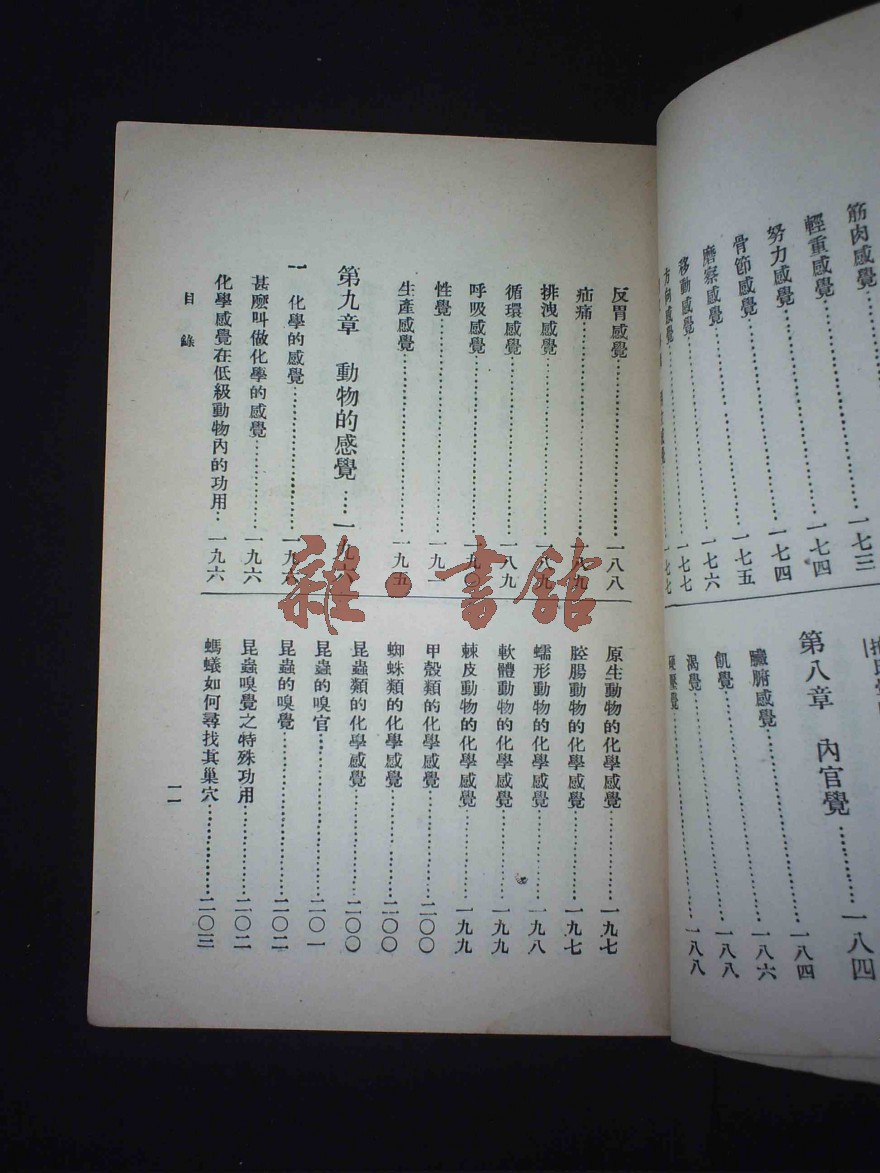 筋肉感覺……一七三
輕重感覺……一七四
努力感覺……一七四
骨節感覺……一七五
磨察感覺……一七六
移動感覺……一七七
方向感覺……一七七
第八章 內官覺……一八四
臟腑感覺……一八四
飢覺……一八六
渴覺……一八八
硬壓覺……一八八
反胃感覺……一八八
疝痛……一八九
排洩感覺……一八九
循環感覺……一八九
呼吸感覺……一九〇
性覺……一九一
生產感覺……一九五
第九章 動物的感覺……一九六
一 化學的感覺……一九六
甚麼叫做化學的感覺……一九六
化學感覺在低級動物內的功用……一九六
原生動物的化學感覺……一九七
腔腸動物的化學感覺……一九七
蠕形動物的化學感覺……一九八
軟體動物的化學感覺……一九九
棘皮動物的化學感覺……一九九
甲殼類的化學感覺……二〇〇
蜘蛛類的化學感覺……二〇〇
昆蟲類的化學感覺……二〇〇
昆蟲的嗅官……二〇一
昆蟲的嗅覺……二〇二
昆蟲嗅覺之特殊功用……二〇二
螞蟻如何尋找其巢穴……二〇三
目錄
一一
雜·書館